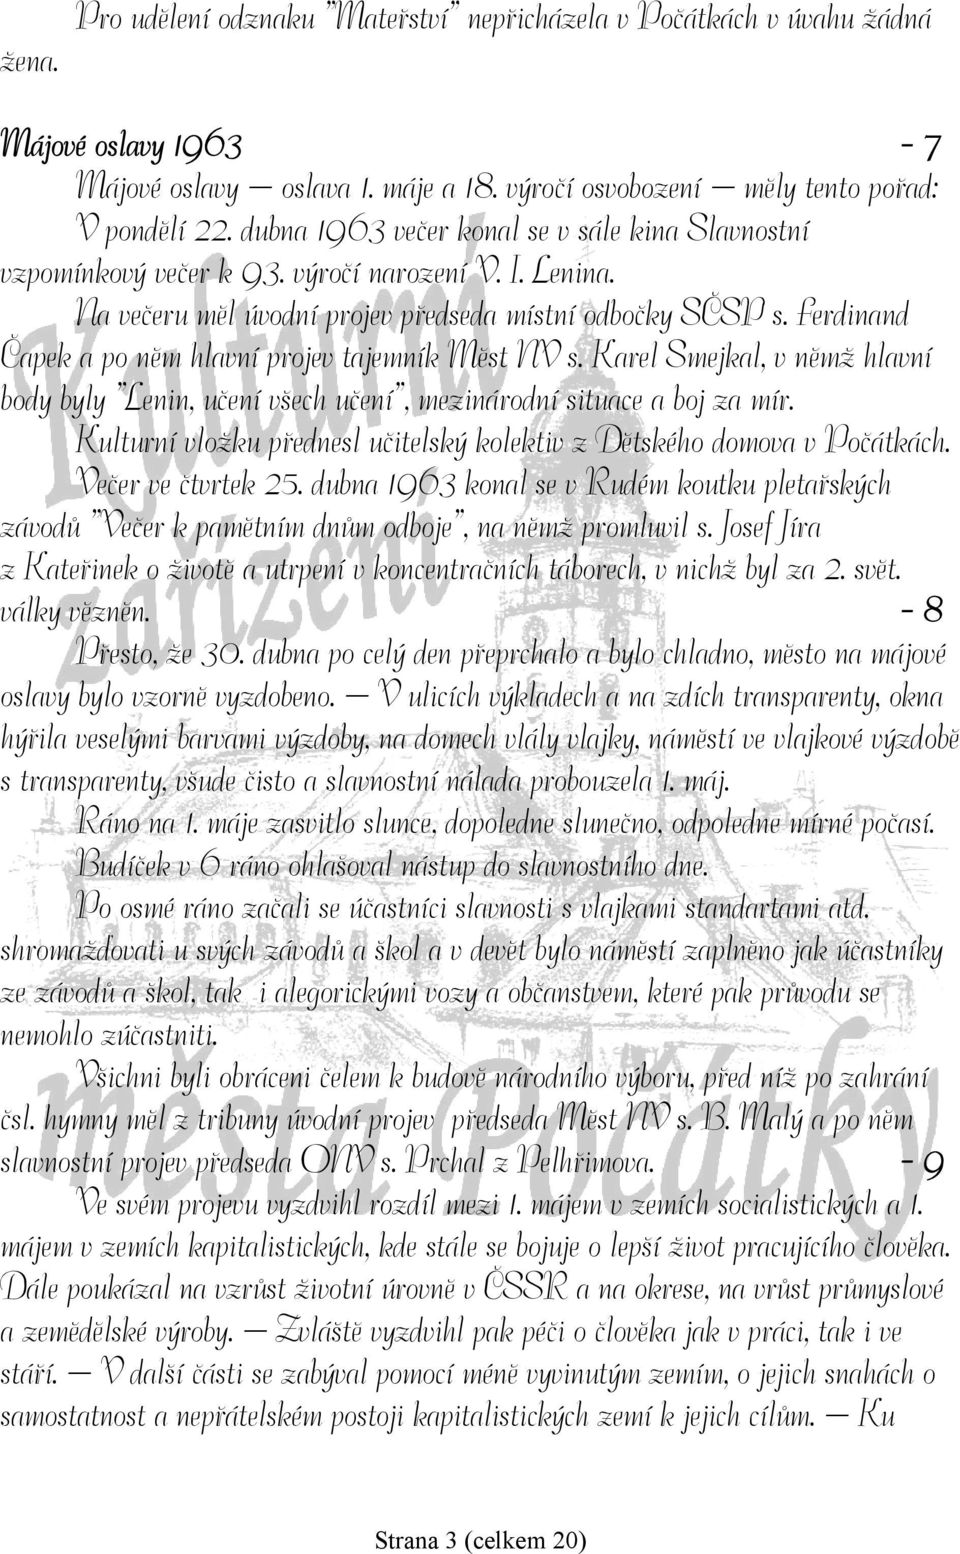 Pro udělení odznaku "Mateřství" nepřicházela v Počátkách v úvahu žádná
žena.
Májové oslavy 1963 - 7
Májové oslavy – oslava 1. máje a 18. výročí osvobození – měly tento pořad:
V pondělí 22. dubna 1963 večer konal se v sále kina Slavnostní
vzpomínkový večer k 93. výročí narození V. I. Lenina.
Na večeru měl úvodní projev předseda místní odbočky SČSP s. Ferdinand
Čapek a po něm hlavní projev tajemník Měst NV s. Karel Smejkal, v němž hlavní
body byly "Lenin, učení všech učení", mezinárodní situace a boj za mír.
Kulturní vložku přednesl učitelský kolektiv z Dětského domova v Počátkách.
Večer ve čtvrtek 25. dubna 1963 konal se v Rudém koutku pletařských
závodů "Večer k pamětním dnům odboje", na němž promluvil s. Josef Jíra
z Kateřinek o životě a utrpení v koncentračních táborech, v nichž byl za 2. svět.
války vězněn. - 8
Přesto, že 30. dubna po celý den přeprchalo a bylo chladno, město na májové
oslavy bylo vzorně vyzdobeno. – V ulicích výkladech a na zdích transparenty, okna
hýřila veselými barvami výzdoby, na domech vlály vlajky, náměstí ve vlajkové výzdobě
s transparenty, všude čisto a slavnostní nálada probouzela 1. máj.
Ráno na 1. máje zasvitlo slunce, dopoledne slunečno, odpoledne mírné počasí.
Budíček v 6 ráno ohlašoval nástup do slavnostního dne.
Po osmé ráno začali se účastníci slavnosti s vlajkami standartami atd.
shromažďovati u svých závodů a škol a v devět bylo náměstí zaplněno jak účastníky
ze závodů a škol, tak i alegorickými vozy a občanstvem, které pak průvodu se
nemohlo zúčastniti.
Všichni byli obráceni čelem k budově národního výboru, před níž po zahrání
čsl. hymny měl z tribuny úvodní projev předseda Měst NV s. B. Malý a po něm
slavnostní projev předseda ONV s. Prchal z Pelhřimova. - 9
Ve svém projevu vyzdvihl rozdíl mezi 1. májem v zemích socialistických a 1.
májem v zemích kapitalistických, kde stále se bojuje o lepší život pracujícího člověka.
Dále poukázal na vzrůst životní úrovně v ČSSR a na okrese, na vrůst průmyslové
a zemědělské výroby. – Zvláště vyzdvihl pak péči o člověka jak v práci, tak i ve
stáří. – V další části se zabýval pomocí méně vyvinutým zemím, o jejich snahách o
samostatnost a nepřátelském postoji kapitalistických zemí k jejich cílům. – Ku
Kulturní
zařízení
města Počátky
Strana 3 (celkem 20)